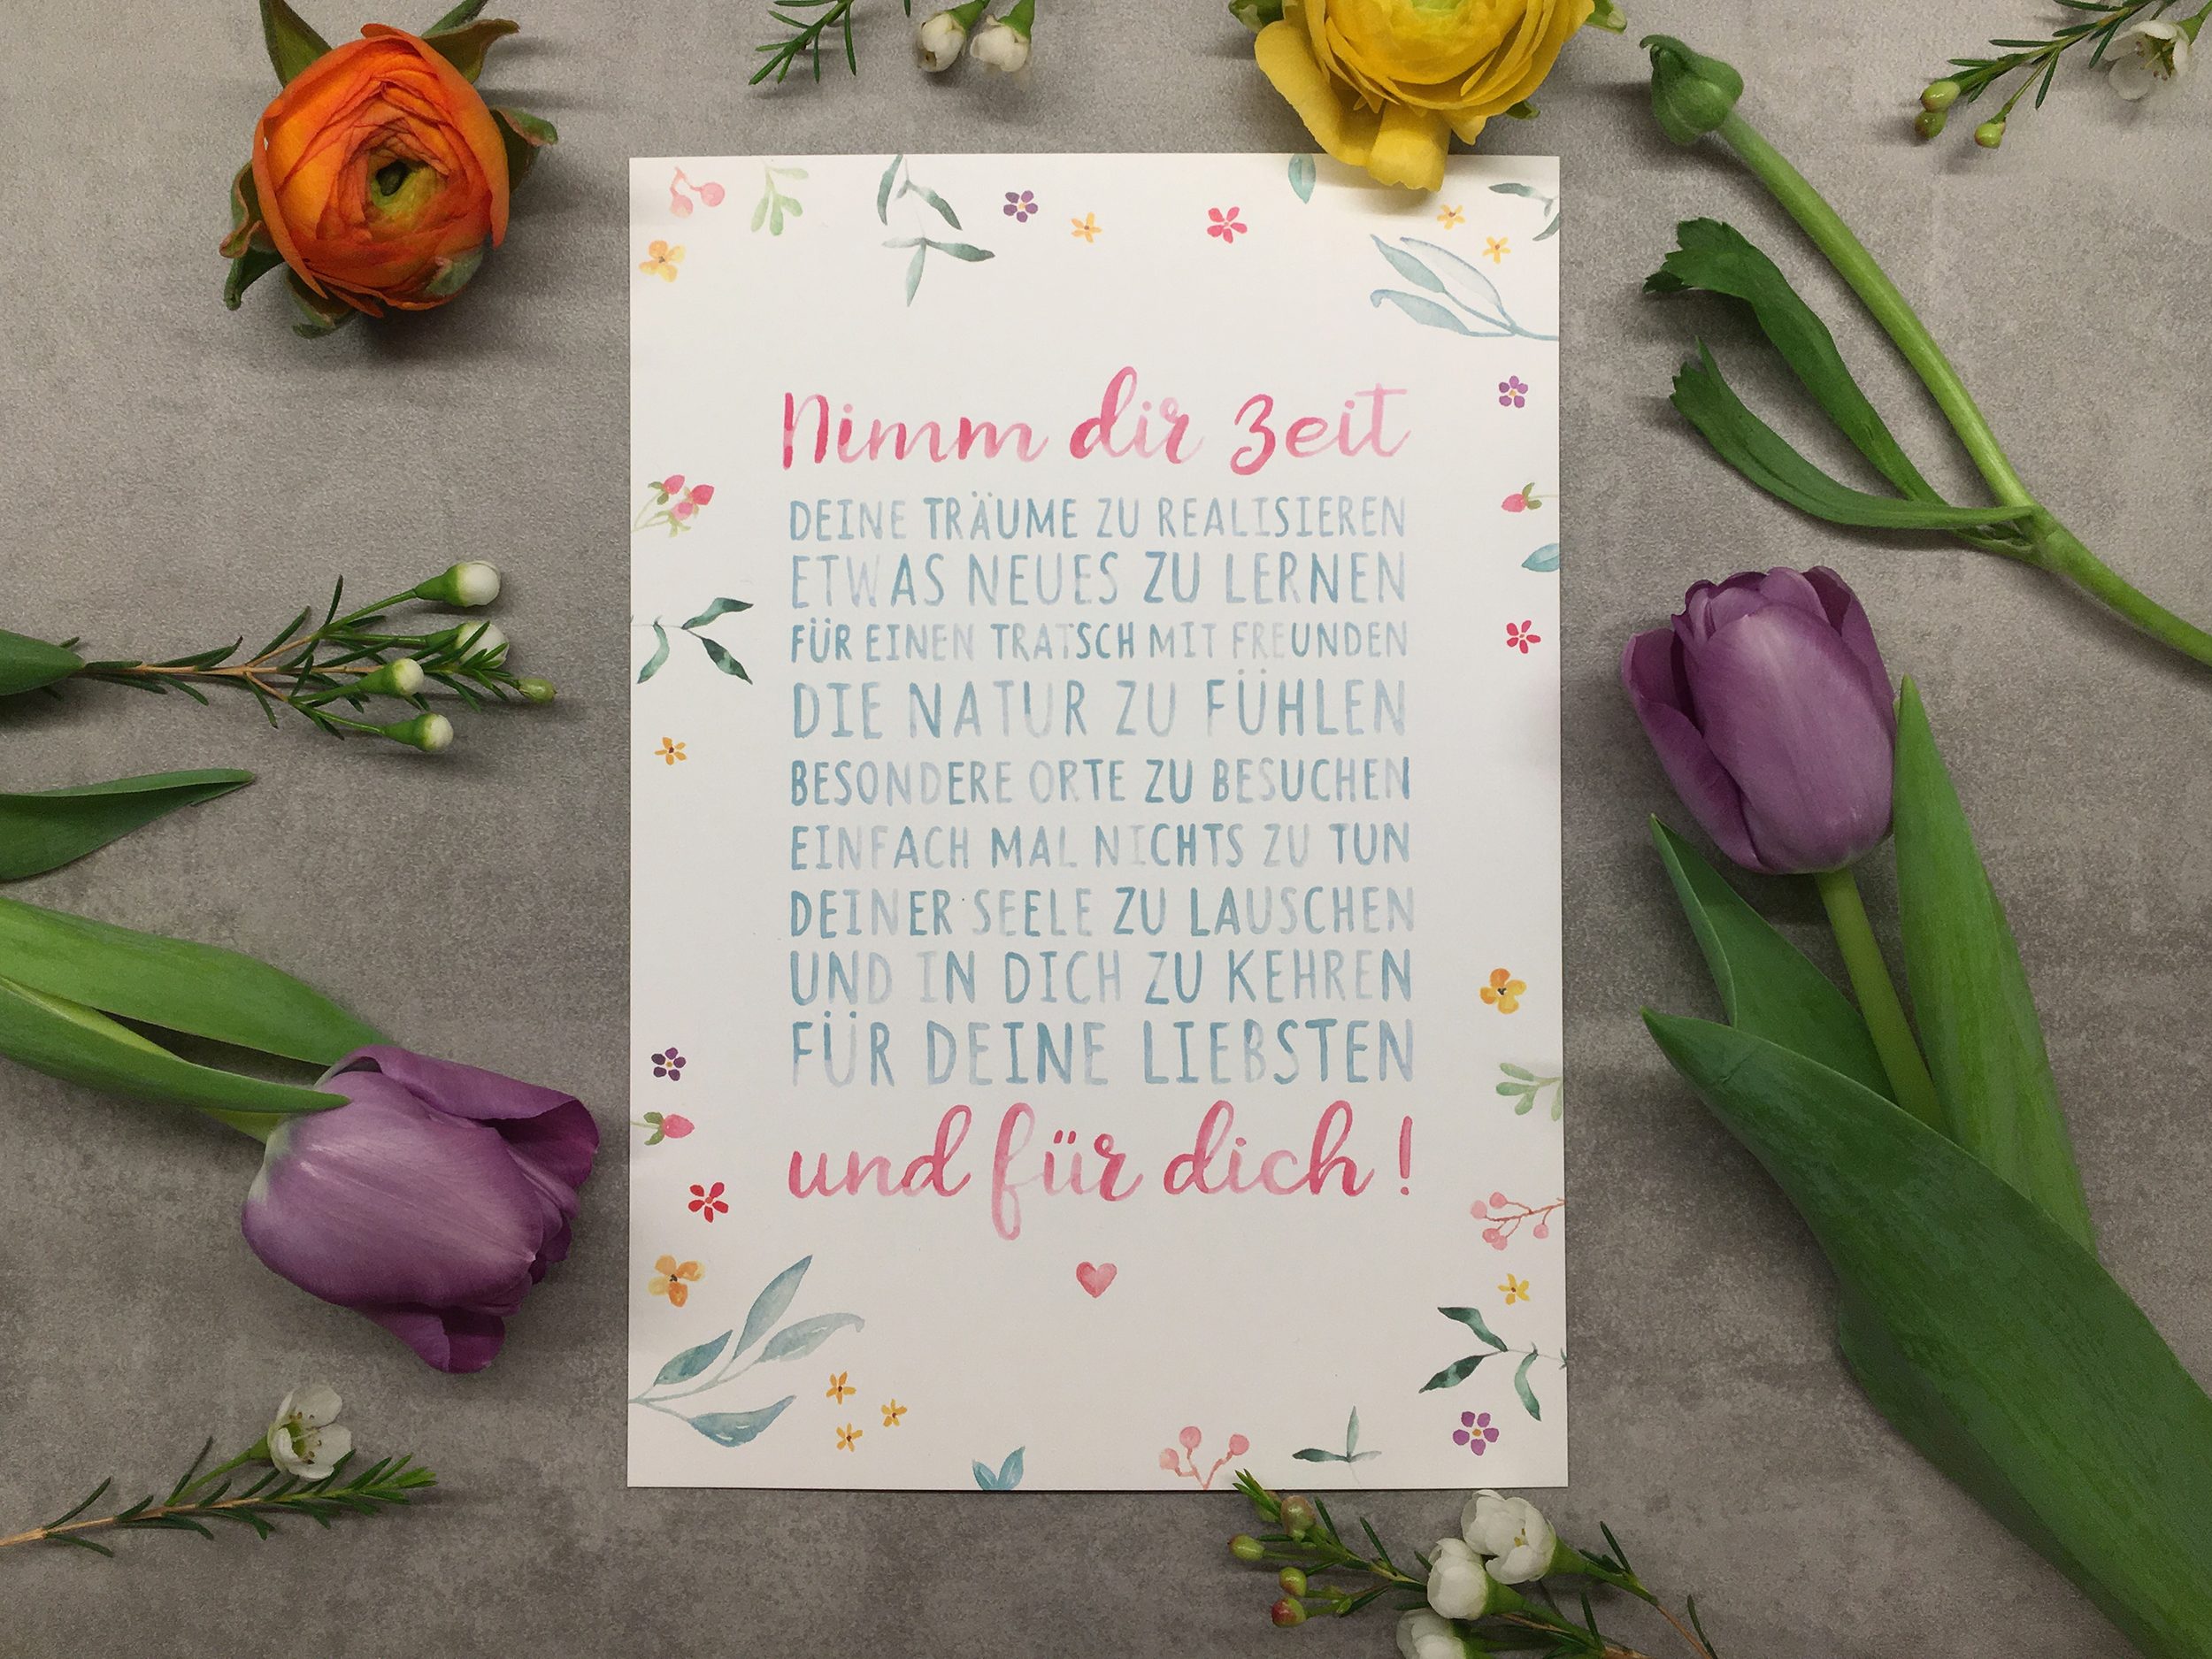 Nimm dir Zeit
DEINE TRÄUME ZU REALISIEREN
ETWAS NEUES ZU LERNEN
FÜR EINEN TRATSCH MIT FREUNDEN
DIE NATUR ZU FÜHLEN
BESONDERE ORTE ZU BESUCHEN
EINFACH MAL NICHTS ZU TUN
DEINER SEELE ZU LAUSCHEN
UND IN DICH ZU KEHREN
FÜR DEINE LIEBSTEN
und für dich!